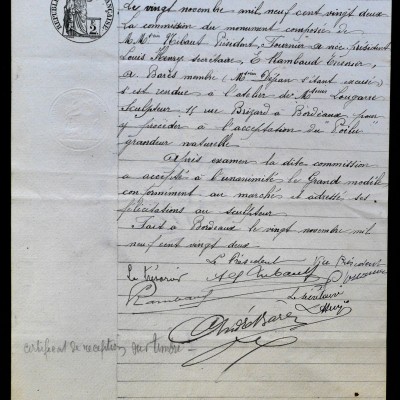 Le vingt novembre mil neuf cent vingt deux
la commission du monument composée de
M. Mrs Thibaut Président, Fournier vice président
Louis secrétaire, E Rambaud trésorier,
A Barès membre (Mr Dejean s'étant excusé)
s'est rendue à l'atelier de Mr Lougarre
Sculpteur 15 rue Brizard à Bordeaux pour
y procéder à l'acceptation du "Poilu"
grandeur naturelle
Après examen la dite commission
a accepté à l'unanimité le Grand modèle
conformément au marché et adresse ses
félicitations au sculpteur
Fait à Bordeaux le vingt novembre mil
neuf cent vingt deux
Le Président Vice Président
Le trésorier
Rambaud
Le secrétaire
André Barès
certificat de réception sur timbre
RÉPUBLIQUE FRANÇAISE
2